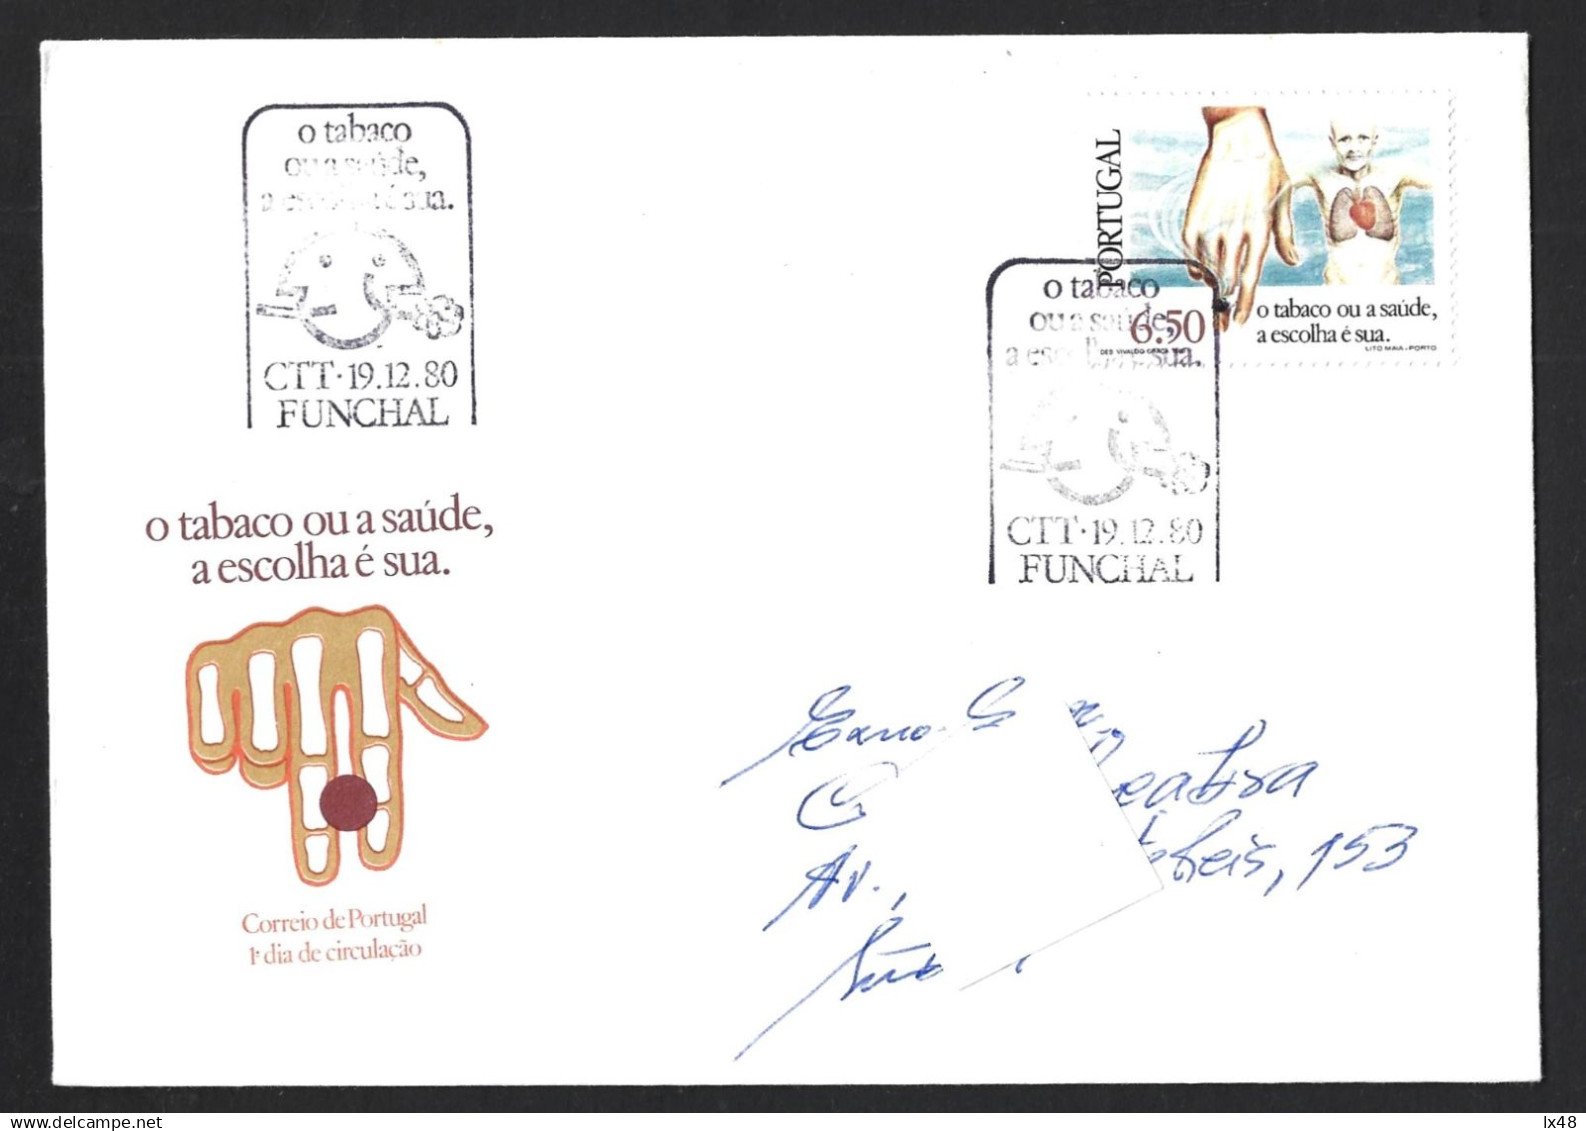 o tabaco
ou a saúde,
a escolha é sua.
CTT·19.12.80
FUNCHAL
PORTUGAL
6.50
o tabaco ou a saúde,
a escolha é sua.
LITO MAIA-PORTO
o tabaco
ou a saúde,
a escolha é sua.
CTT·19.12.80
FUNCHAL
o tabaco ou a saúde,
a escolha é sua.
Correio de Portugal
1º dia de circulação
Av.,
153
lx48